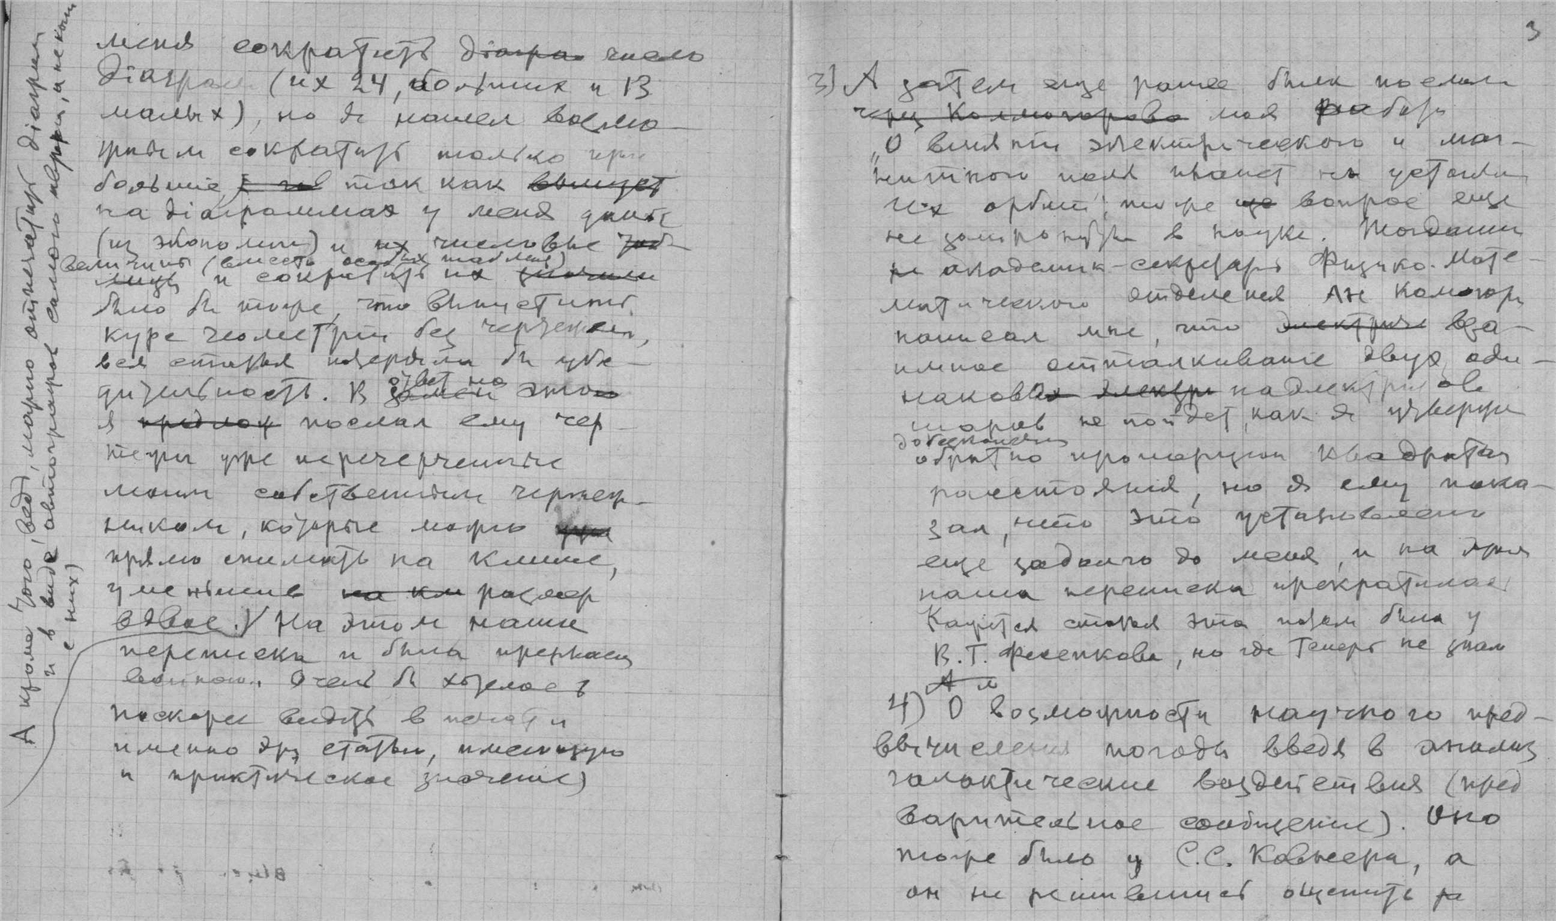 меня сократить діагра число
діаграм (их 24, больших и 13
малых), но я нашел возмо
жным сократить только три
большие так как
на діаграммах у меня даны
(из экономии) и их числовые
величины (вместо особых таблиц)
и сократить их
было бы тоже, что выпустить
курс геометріи без чертежей,
вся статья потеряла бы убе
дительность. В ответ на это
я предлож послал ему чер
тежи уже перечерченные
моим собственным чертеж-
ником, которые можно
прямо снимать на клише,
уменьшив на кл размер
вдвое. На этом наша
переписка и была прервана
войною. Очень бы хотелось
поскорее видеть в печати
именно эту статью, имеющую
и практическое значение)
А кроме того, ведь, можно отпечатать діаграм
и в виде автографов самого пера, а не копии
с них)
3
3) А затем еще ранее была послана
через Колмогорова моя работа
„О вліяніи электрического и маг-
нитного поля планет на устойч
их орбит, тоже вопрос еще
не затронутый в науке. Тогдашни
й академик-секретарь Физико-Мате-
матического отделения АН Комогор
написал мне, что электриче вза-
имное отталкивание двух оди-
наковых электр наэлектризов
шаров не пойдет, как я утвержд
до бесконечн
обратно пропорціи квадратам
расстояния, но я ему пока-
зал, что это установлено
еще задолго до меня, и на этом
наша переписка прекратилась
Кажется статья эта потом была у
В. Г. Фесенкова, но где теперь не знаю
А м
4) О возможности научного пред-
вычисления погоды введя в анализ
галактические воздействия (пред
варительное сообщение). Оно
тоже было у С.С. Ковнера, а
он не решившись оценить